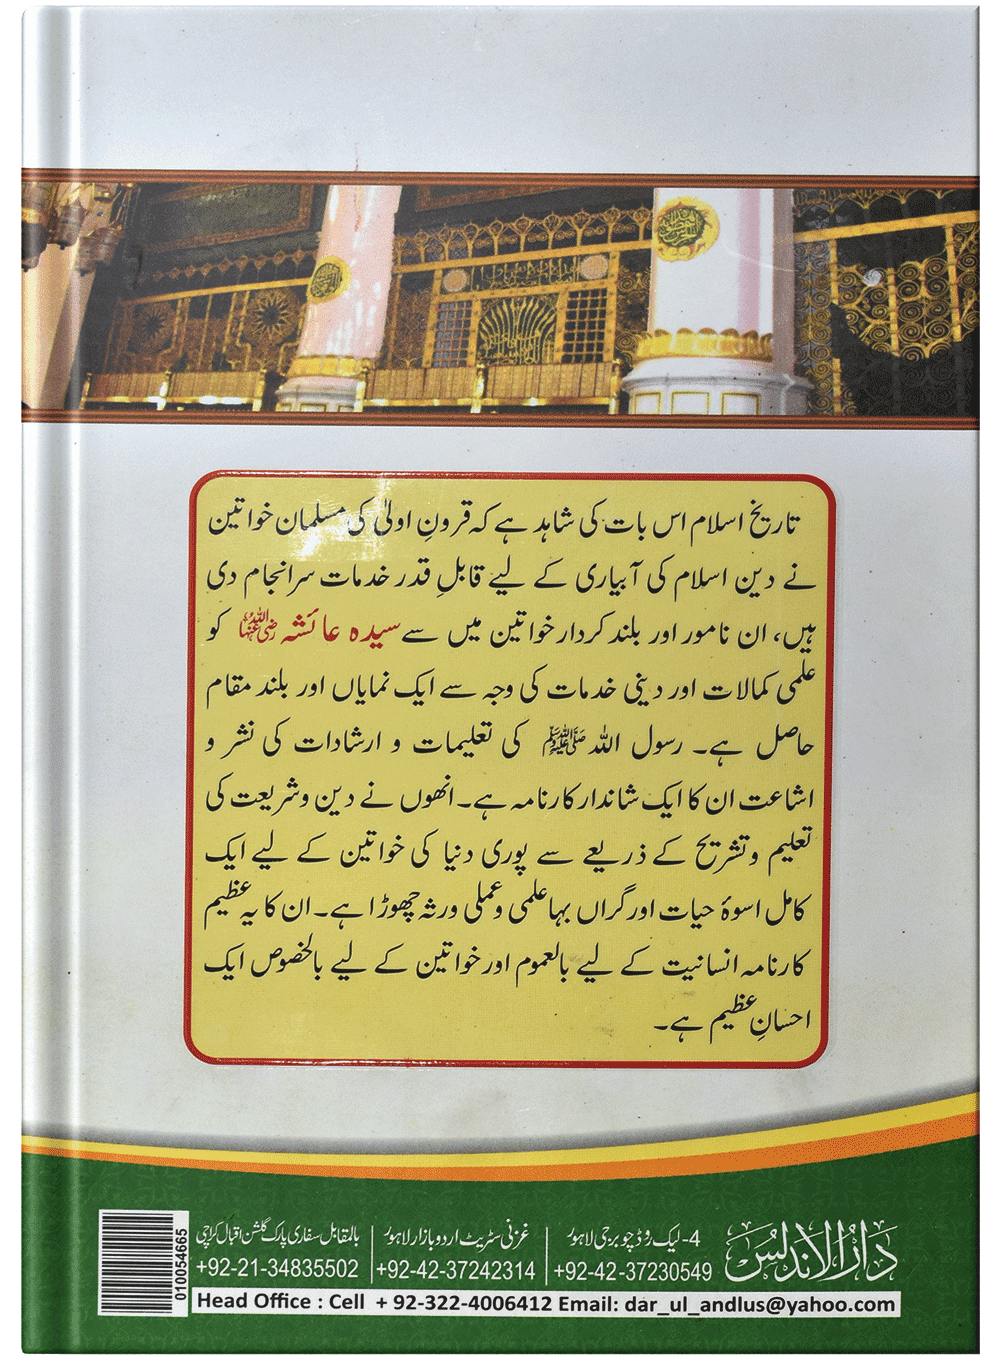 تاریخ اسلام اس بات کی شاہد ہے کہ قرونِ اولیٰ کی مسلمان خواتین
نے دین اسلام کی آبیاری کے لیے قابلِ قدر خدمات سرانجام دی
ہیں، ان نامور اور بلند کردار خواتین میں سے سیدہ عائشہ رضی اللہ عنہا کو
علمی کمالات اور دینی خدمات کی وجہ سے ایک نمایاں اور بلند مقام
حاصل ہے۔ رسول اللہ ﷺ کی تعلیمات و ارشادات کی نشر و
اشاعت ان کا ایک شاندار کارنامہ ہے۔ انھوں نے دین و شریعت کی
تعلیم و تشریح کے ذریعے سے پوری دنیا کی خواتین کے لیے ایک
کامل اسوۂ حیات اور گراں بہا علمی و عملی ورثہ چھوڑا ہے۔ ان کا یہ عظیم
کارنامہ انسانیت کے لیے بالعموم اور خواتین کے لیے بالخصوص ایک
احسانِ عظیم ہے۔
دارُالاندلس
4- لیک روڈ چوبرجی لاہور
+92-42-37230549
غزنی سٹریٹ اردو بازار لاہور
+92-42-37242314
بالمقابل سفاری پارک گلشن اقبال کراچی
+92-21-34835502
Head Office : Cell + 92-322-4006412 Email: dar_ul_andlus@yahoo.com
010054665